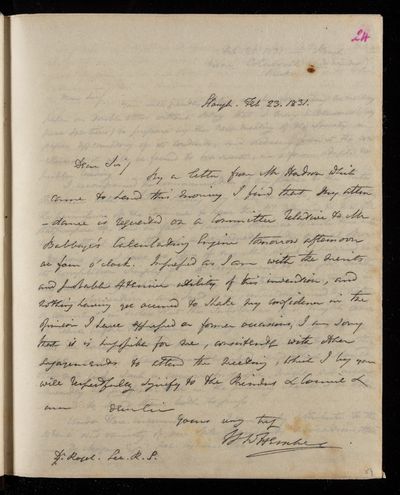 24
Slough. Feb 23. 1831.
Dear Sir,
By a letter from Mr Hudson which
came to hand this morning I find that my atten
-dance is requested on a Committee relative to Mr
Babbage's Calculating Engine tomorrow afternoon
at four o'clock. Impressed as I am with the merits
and probable extensive utility of this invention, and
nothing having yet occurred to shake my confidence in the
opinion I have expressed on former occasions, I am sorry
that it is impossible for me, consistently with other
engagements to attend the meeting, which I beg you
will respectfully signify to the President & Council &
Yours very truly
JFW Herschel
Dr. Roget. Sec. R. S.